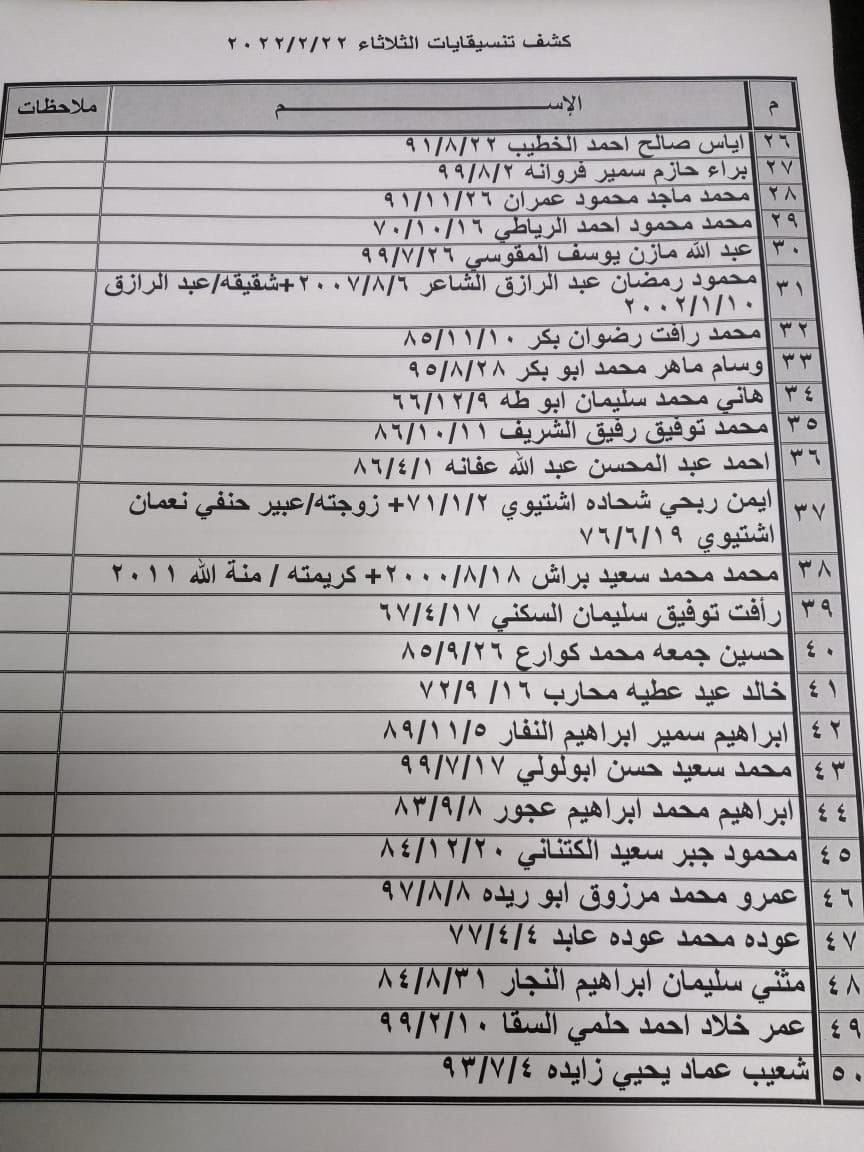 كشف تنسيقايات الثلاثاء ٢٠٢٢/٢/٢٢
م الإســـــم ملاحظات
٢٦ اياس صالح احمد الخطيب ٩١/٨/٢٢
٢٧ براء حازم سمير فروانه ٩٩/٨/٢
٢٨ محمد ماجد محمود عمران ٩١/١١/٢٦
٢٩ محمد محمود احمد الرياطي ٧٠/١٠/١٦
٣٠ عبد الله مازن يوسف المقوسي ٩٩/٧/٢٦
٣١ محمود رمضان عبد الرازق الشاعر ٢٠٠٧/٨/٦+شقيقه/عبد الرازق
٢٠٠٢/١/١٠
٣٢ محمد رافت رضوان بكر ٨٥/١١/١٠
٣٣ وسام ماهر محمد ابو بكر ٩٥/٨/٢٨
٣٤ هاني محمد سليمان ابو طه ٦٦/١٢/٩
٣٥ محمد توفيق رفيق الشريف ٨٦/١٠/١١
٣٦ احمد عبد المحسن عبد الله عفانه ٨٦/٤/١
٣٧ ايمن ربحي شحاده اشتيوي ٧١/١/٢+ زوجته/عبير حنفي نعمان
اشتيوي ٧٦/٦/١٩
٣٨ محمد محمد سعيد براش ٢٠٠٠/٨/١٨+ كريمته / منة الله ٢٠١١
٣٩ رأفت توفيق سليمان السكني ٦٧/٤/١٧
٤٠ حسين جمعه محمد كوارع ٨٥/٩/٢٦
٤١ خالد عيد عطيه محارب ١٦/ ٧٢/٩
٤٢ ابراهيم سمير ابراهيم النفار ٨٩/١١/٥
٤٣ محمد سعيد حسن ابولولي ٩٩/٧/١٧
٤٤ ابراهيم محمد ابراهيم عجور ٨٣/٩/٨
٤٥ محمود جبر سعيد الكتناني ٨٤/١٢/٢٠
٤٦ عمرو محمد مرزوق ابو ريده ٩٧/٨/٨
٤٧ عوده محمد عوده عابد ٧٧/٤/٤
٤٨ مثني سليمان ابراهيم النجار ٨٤/٨/٣١
٤٩ عمر خلاد احمد حلمي السقا ٩٩/٢/١٠
٥٠ شعيب عماد يحيي زايده ٩٣/٧/٤